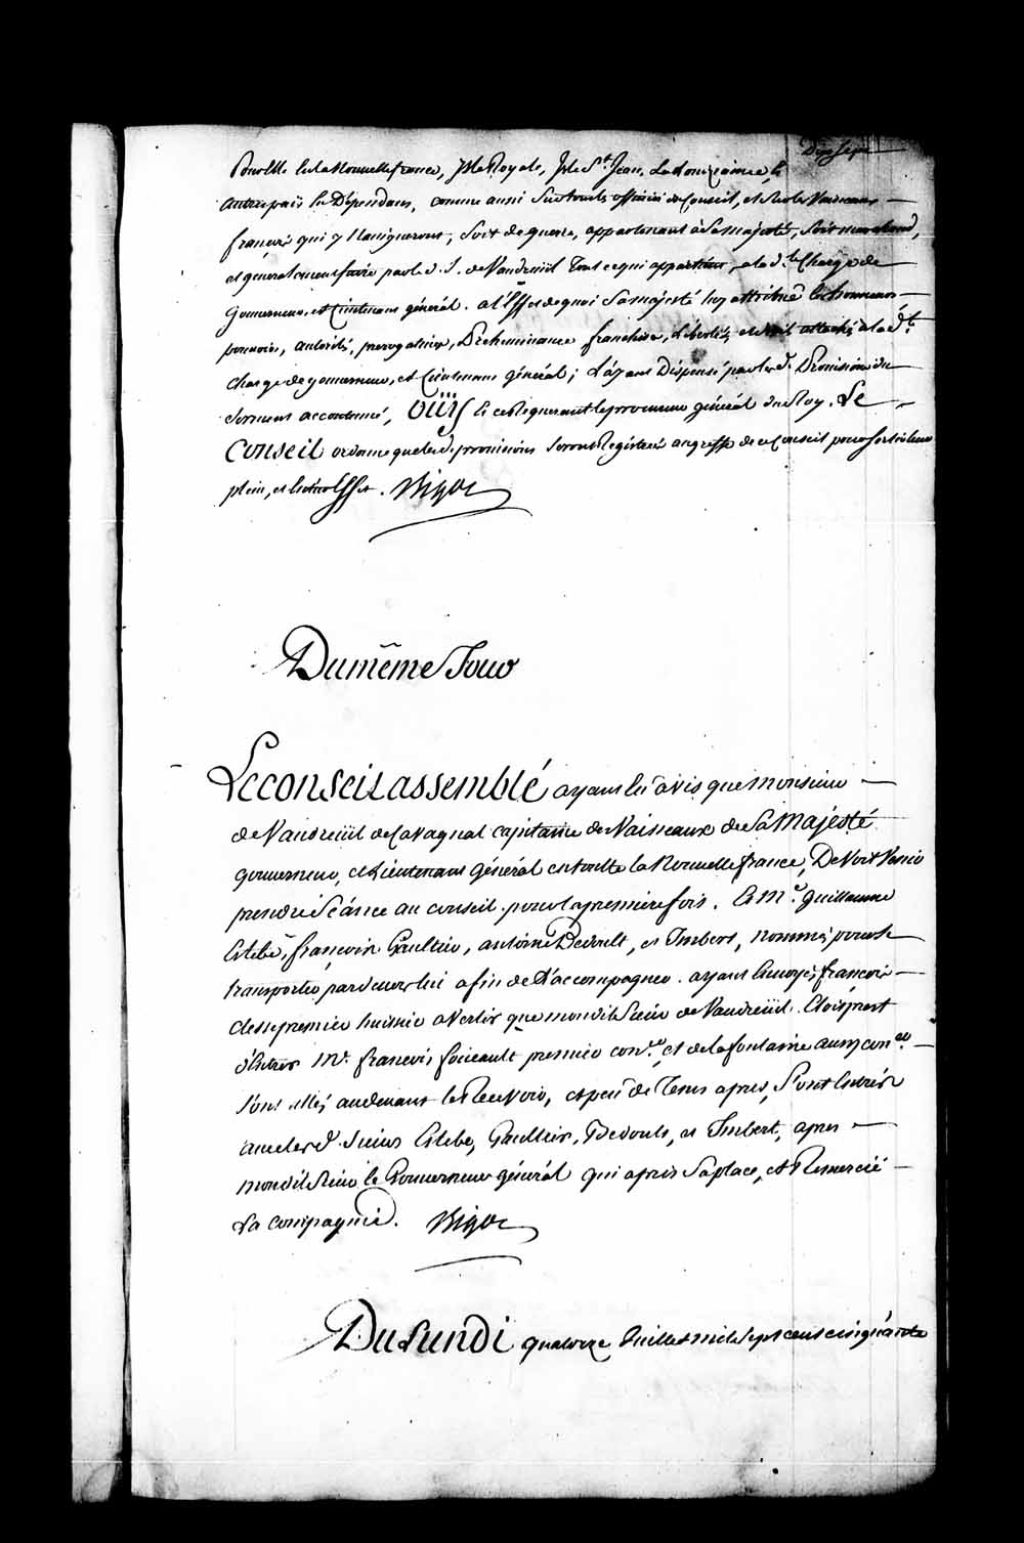 Dixsept
Pour de la Nouvelle france, Isle Royale, Isle St. Jean, La Louizianne, et
Autres païs En Dépendans, comme aussi Sur tous les officiers de Conseil, et Sur les Vaisseaux
françois qui y Navigueront, soit de guerre, appartenant à Sa majesté, Soit marchand,
et generalement faire par le d. S. de Vaudreüil Tout ce qui appartient, a la d.te Charge de
Gouverneur, et Lieutenant général. a l'Effet de quoi Sa majesté luy attribuë les honneurs
pouvoirs, autorités, prerogatives, Préheminance franchises, Libertés, et droits attachés a la d.te
charge de gouverneur, et Lieutenant général; L'ayant Dispensé par les d. Provisions du
serment accoutumé, OÜIIS Et ce Requerant le procureur général du Roy. Le
Conseil ordonne que les d. provisions seront Registrées au greffe de ce Conseil pour sortir leur
plein, et Entier Effet. Bigot
Du même Jour
Le conseil assemblé ayant Eu avis que monsieur
de Vaudreüil de Cavagnal capitaine de Vaisseaux de Sa Majesté
gouverneur, et Lieutenant général en toutte la Nouvelle france, Devoit Venir
prendre Séance au conseil pour la premiere fois. Et M.e guillaume
Estebe, françois Gaultier, antoine Bedoult, et Imbert, nommés pour se
transporter par devers lui afin de L'accompagner. ayant Envoyé françois
Clesse premier huissier avertir que mondit Sieur de Vaudreüil. Etois prest
d'Entrer M.r francois foucault premier con.er, et de la fontaine aussy con.er
sont allés audevant le Recevoir, et peu de Tems apres, Sont Entrés
avec les d. Sieurs Estebe, Gaultier, Bedoult, et Imbert, apres
mondit Sieur le Gouverneur général qui a pris Sa place, et Remercié
La compagnie. Bigot
Du Lundi quatorze Juillet mil Sept cent cinquante